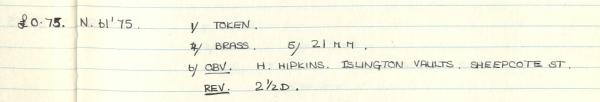 £0.75. N. b1'75. 1/ TOKEN.
4/ BRASS. 5/ 21 MM.
6/ OBV. H. HIPKINS. ISLINGTON VAULTS. SHEEPCOTE ST.
REV. 2½D.